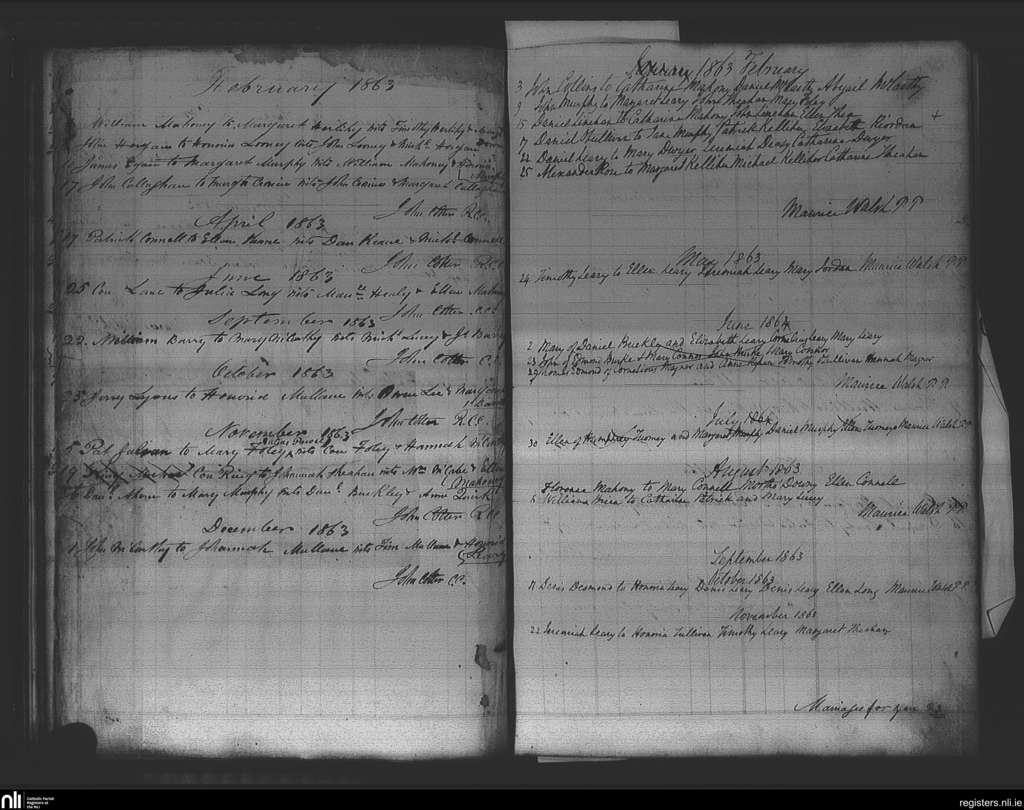 February 1863
William Mahony to Margaret Herlihy wits Timothy Herlihy &
John Horgan to Honoria Looney wits John Looney & Mich. Horgan
James Lyne to Margaret Murphy wits William Mahoney & Honoria
17 John Callaghan to wits John & Margaret Callaghan
John Cotter R.C.C.
April 1863
17 Patrick Connell to Ellen Keane wits Dan Keane & Mich. Connell
John Cotter R.C.C.
June 1863
25 Con Lane to Julia Long wits Mau. Healy & Ellen Mahony
John Cotter R.C.C.
September 1863
22. William Barry to Mary McCarthy wits Mich. Lucy & Js Barry
John Cotter C.C.
October 1863
25 Jerry Lyons to Honoria Mullane wits Owen Lee & Mary
John Cotter R.C.C.
November 1863
5 Pat to Mary Foley wits Con Foley & Hannah McCarthy
19 Con Ring to Johannah Sheahan wits Wm McCabe & Ellen
Mahony
Dan. Ahern to Mary Murphy wits Dan. Buckley & Anne Quirk
John Cotter R.C.C.
December 1863
1 John McCarthy to Johannah Mullane wits Tim Mullane & Honoria
Leary
John Cotter C.C.
January 1863 February
3 John Collins to Catharine Mahony Daniel McCarthy Abigail McCarthy
9 John Murphy to Margaret Leary John Sheahan Mary Foley
15 Daniel Linehan to Catharine Mahony John Linehan Ellen Shea
17 Daniel Spillane to Jane Murphy Patrick Kelliher Elizabeth Riordan +
22 Daniel Leary to Mary Dwyer Jeremiah Deasy Catharine Dwyer
25 Alexander Rose to Margaret Kelliher Michael Kelliher Catharine Sheahan
Maurice Walsh P.P.
May 1863
24 Timothy Leary to Ellen Leary Jeremiah Leary Mary Jordan Maurice Walsh P.P.
June 1864
2 Mary of Daniel Buckley and Elizabeth Leary Cornelius Leary Mary Leary
23 John of Edmond Burke & Mary Connor John Burke & Mary Connor
29 Thomas Edmond of Cornelious Maynor and Anne Timothy Sullivan Hannah Maynor
Maurice Walsh P.P.
July 1864
30 Ellen of Humphrey Twomey and Margaret Murphy Daniel Murphy Ellen Twomey Maurice Walsh P.P.
August 1863
Florence Mahony to Mary Connell Denny Ellen Connell
William to Catharine Patrick and Mary Lucey
Maurice Walsh P.P.
September 1863
October 1863
11 Denis Desmond to Honoria Leary Daniel Leary Denis Leary Ellen Long Maurice Walsh P.P.
November 1863
22 Jeremiah Leary to Honoria Sullivan Timothy Leary Margaret Sheahan
Marriages for year 23
nli
Catholic Parish
Registers at
the NLI
registers.nli.ie